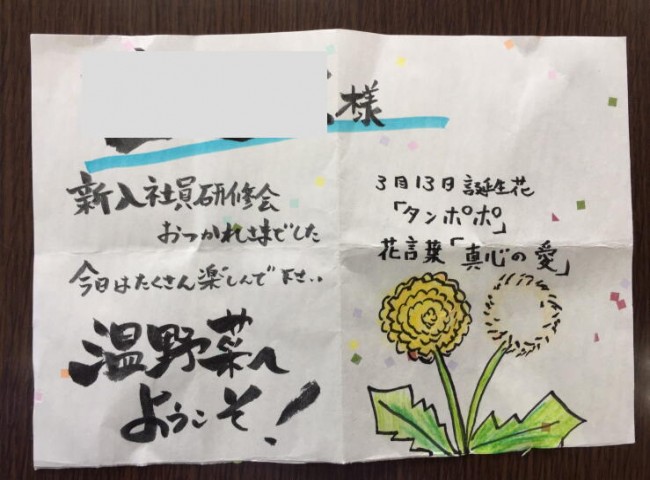 様
新入社員研修会
おつかれさまでした
今日はたくさん楽しんで下さい、
温野菜へ
ようこそ!
3月13日誕生花
「タンポポ」
花言葉「真心の愛」